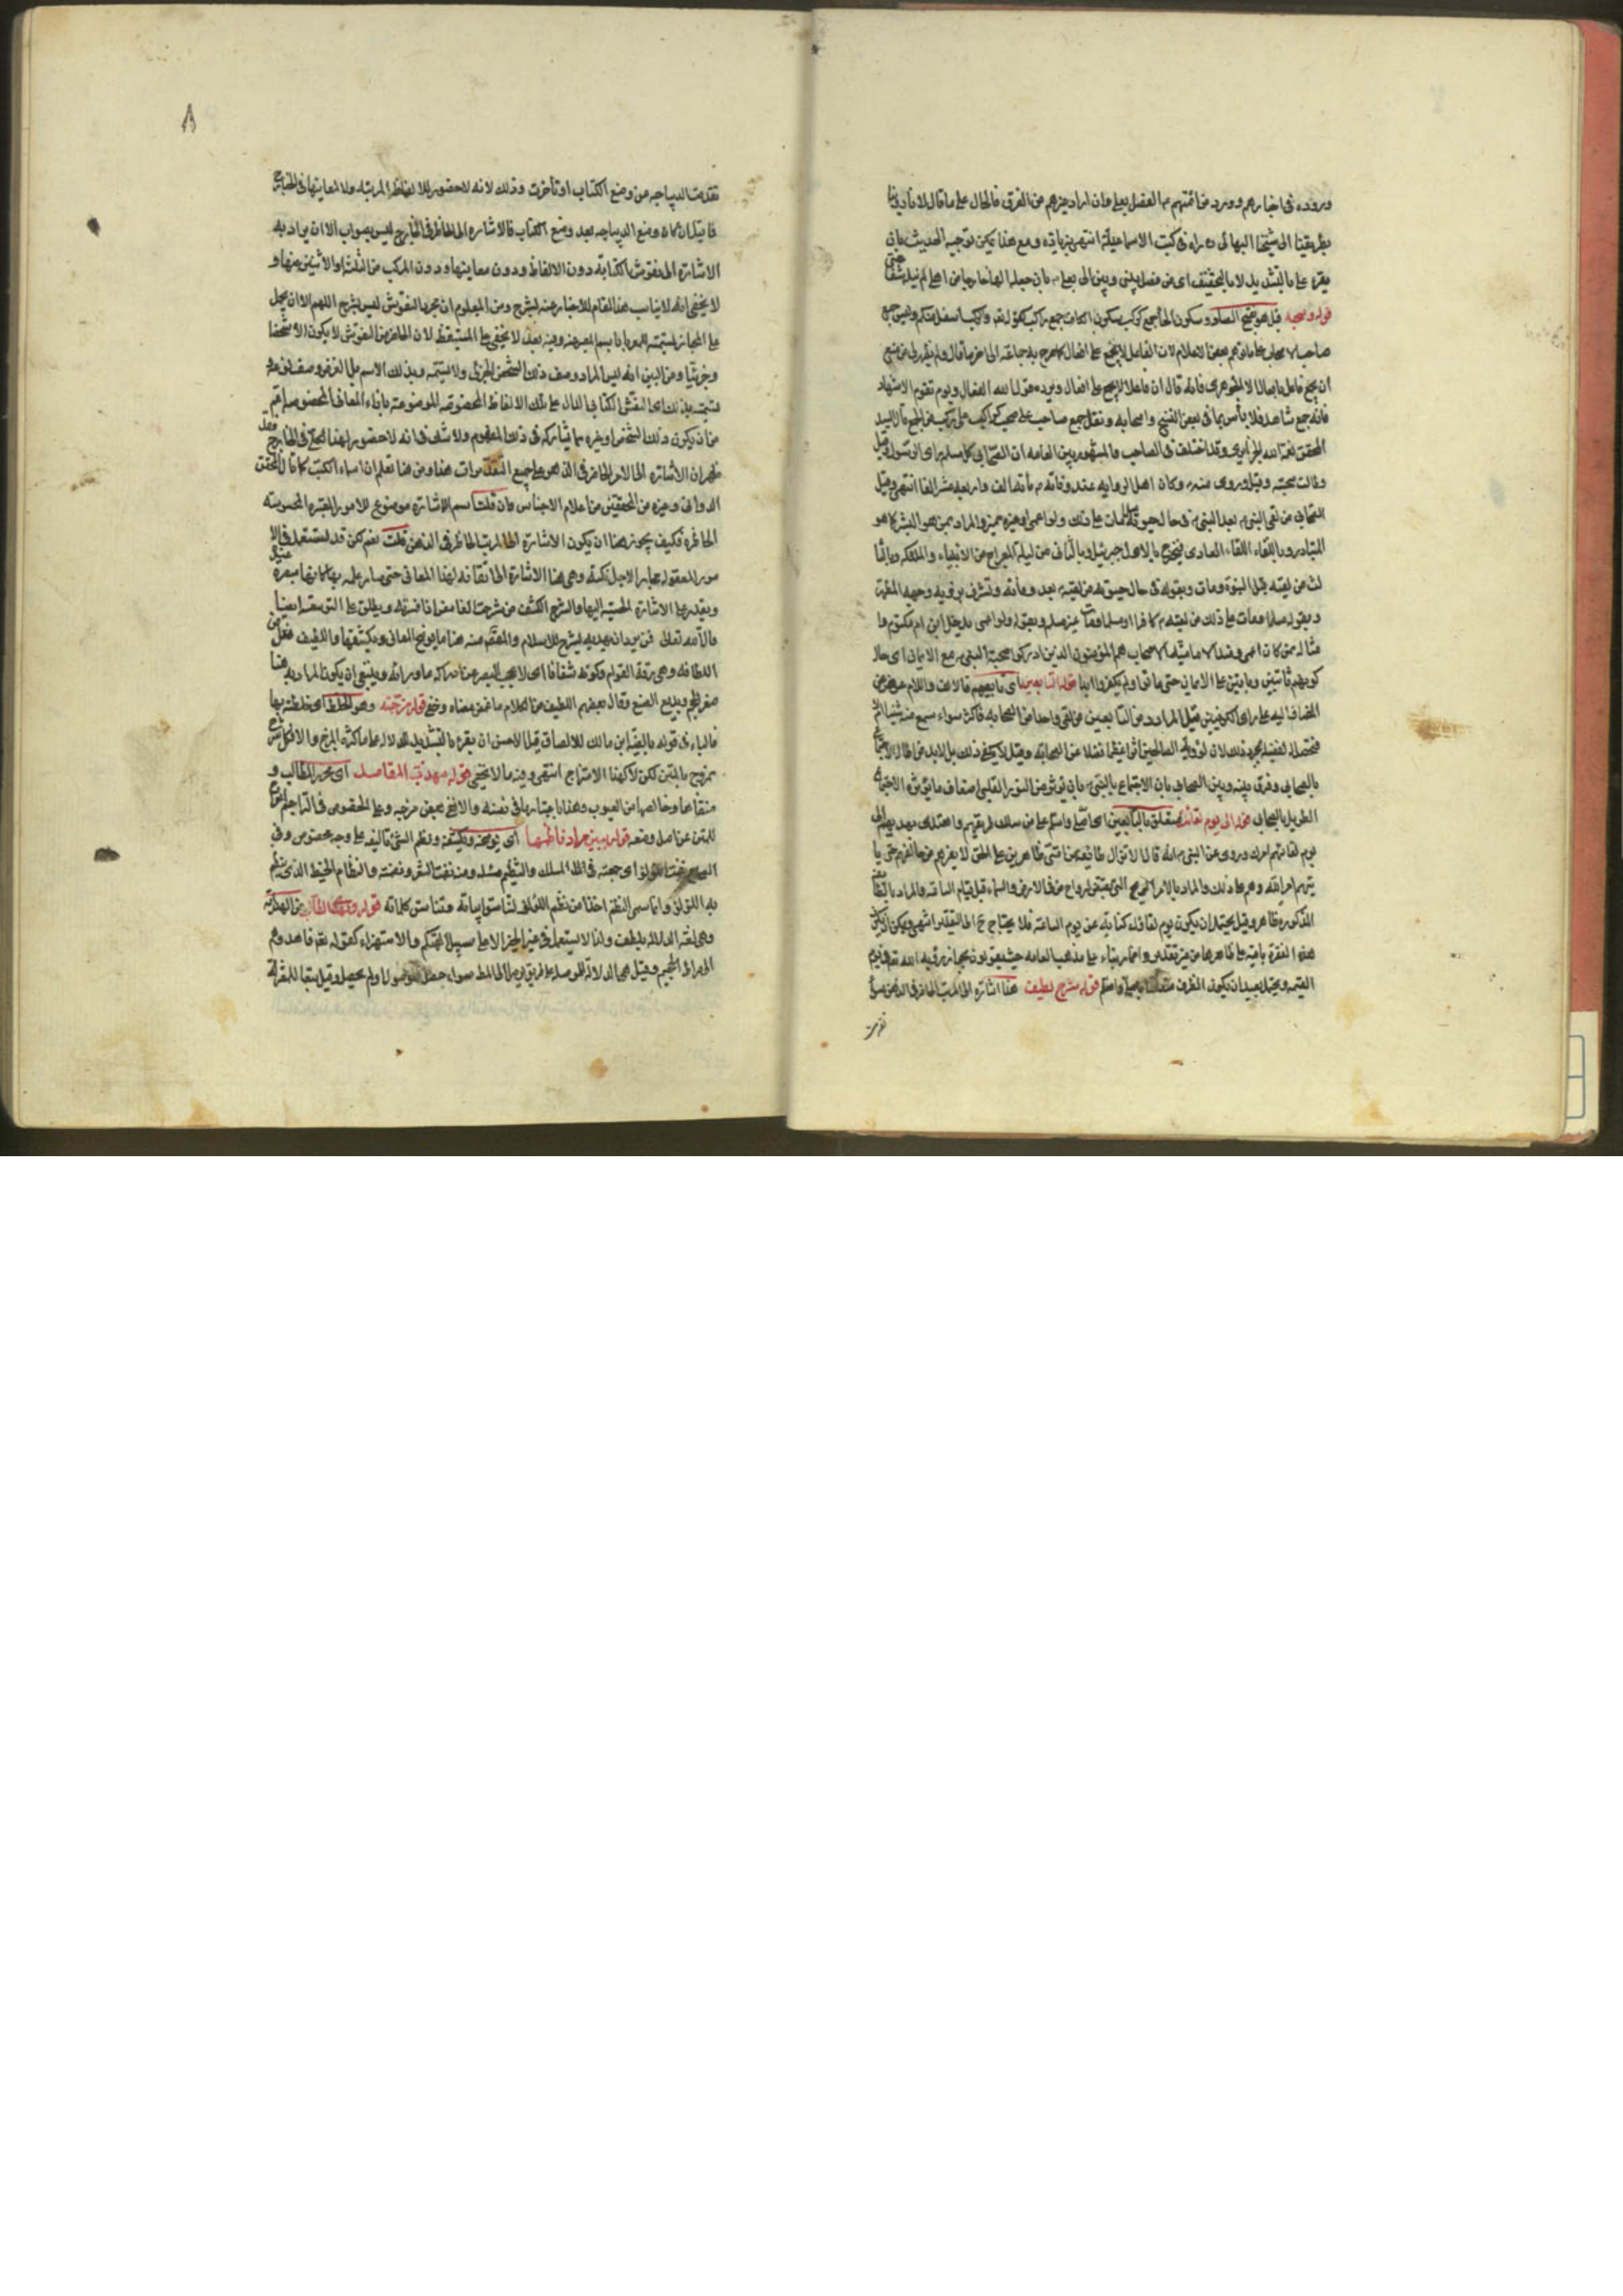 وروده في اخبارهم وورد من ائمتهم
بطريقنا الى شيخنا البهائي ره راه في كتب الاسماعيلية انتهى بزيادة ومع هذا يمكن توجيه الحديث بان
يقرء على بالتشديد لا بالتخفيف اى من فصل بيني وبين الى بعلى
قوله وصحبه قيل هو بفتح الصاد وسكون الحاء جمع كركب بسكون الكاف جمع راكب كقوله تعم والركب اسفل منكم وليس جمع
صاحب لان الفاعل لا يجمع على افعال كما صرح به جماعة
ان يجمع فاعل بافعال الا الجوهرى فانه قال ان فاعلا لا يجمع على افعال ويرده قول الله ويوم تقوم الاشهاد
فانه جمع شاهد فلا بأس بما في بعض النسخ واصحابه ونقل جمع صاحب على صحب كراكب على ركب قال السيد
المحقق نعمة الله الجزايرى وقد اختلف في الصاحب فالمشهور بين العامه ان الصحابى كل مسلم راى الرسول وقيل
وطالت صحبته وقيل وروى عنه وكان اهل الرواية عند وفاته مائة الف واربعة عشر الفا انتهى وقيل
الصحابى من لقى النبى بعد النبوة في حال حيوته ومات على ذلك ولو اعمى او غيره مميز والمراد بمن هو البشر كما هو
المتبادر وباللقاء اللقاء العادى فيخرج بالاول جبرئيل وبالثانى من ليلة المعراج من الانبياء والملئكه وبالثا
لث من لقيه قبل النبوة ومات وبقوله في حال حيوته من لقيه بعد وفاته وتشرف برؤيه وجهه المطهر
وبقوله مسلما ومات على ذلك من لقيه كافرا او مسلما ومات غير مسلم وبقوله ولو اعمى يدخل ابن ام مكتوم وا
مثاله ممن كان اعمى وعند الاماميّة الاصحاب هم المؤمنون الذين ادركوا صحبة النبى مع الايمان اى حال
كونهم ثابتين وباقين على الايمان حتى ماتوا ولم يكفروا ابدا قوله التابعين اى تابعيهم فالالف واللام عوض عن
المضاف اليه على راى الكوفيين قيل المراد من التابعين من لقى واحدا من الصحابه فاكثر سواء سمع منه شيئا ام
بالصحابى وفرق بينه وبين الصحابى بان الاجتماع بالنبى يؤثر من النور القلبى اضعاف ما يؤثره الاجتماع
الطويل بالصحابى قوله الى يوم لقائه متعلق بالتابعين
يوم لقائهم وروى عن النبى انه قال لا تزال طائفة من امتى ظاهرين على الحق لا يضرهم من خالفهم حتى يا
تيهم امر الله وهم على ذلك والمراد بالامر الريح التى يقبض ارواح من في الارض والسماء قبل قيام الساعه والمراد
المذكوره ظاهر وقيل يحتمل ان يكون يوم لقائه كناية عن يوم الساعة فلا يحتاج ح الى التقدير انتهى ويمكن
هذه الفقرة باقية على ظاهرها من غير تقدير بناء على مذهب العامه حيث يقولون بجواز رؤية الله تعم في يوم
القيمه ويحتمل بعيدا ان يكون الظرف قوله شرح لطيف هذا اشارة الى المرتب الحاضر في الذهن سواء
تقدمت
٨
تقدمت الديباجه عن وضع الكتاب او تأخرت وذلك لانه لا حضور للالفاظ المرتبه ولا لمعانيها في الخارج
فما قيل ان كان وضع الديباجه بعد وضع الكتاب فالاشاره الى الحاضر في الخارج ليس بصواب الا ان يراد به
الاشارة الى نقوش الكتابة دون الالفاظ ودون معانيها ودون المركب من الثلثة او الاثنين منها و
لا يخفى انه لا يناسب هذا المقام للاخبار عنه بشرح ومن المعلوم ان مجرد النقوش ليس بشرح اللهم الا ان يحمل
على المجاز بتسميته المعبر باسم المعبر عنه وفيه بعد لا يخفى على المستيقظ لان الحاضر من النقوش لا يكون الا شخصا
وجزئيا ومن البين انه ليس المراد وصف ذلك الشخص الجزئى ولا تسميته بذلك الاسم بل الغرض وصف نوعه و
تسميته بذلك اى النقش الكتابى الدال على تلك الالفاظ المخصوصه الموضوعة بازاء المعانى المخصوصه اعم
من ان يكون ذلك الشخص او غيره مما يشاركه في ذلك المفهوم ولا شك في انه لا حضور لهذا الكلى في الخارج فقد
ظهر ان الاشاره الى الامر الحاضر في الذهن هو على جميع التقديرات هذا ومن هنا تعلم ان اسماء الكتب كما قال المحقق
الدوانى وغيره من المحققين من اعلام الاجناس فان قلت اسم الاشارة موضوع للامور المبصره المحسوسه
الحاضره فكيف يجوز هنا ان يكون الاشارة الى المرتب الحاضر في الذهن قلت نعم لكن قد يستعمل في الا
مور المعقوله مجازا لاجل نكته وهى هنا الاشارة الى اتقانه لهذا المعانى حتى صار علمه بها كانها مبصره عنده
ويقدر على الاشارة الحسيّه اليها والشرح الكشف من شرحت الغامض اذا فسرته ويطلق على التوسعه ايضا
قال الله تعالى فمن يرد ان يهديه يشرح للاسلام والمقصود منه هنا ما يوضح المعانى ويكشفها واللطيف فعيل من
اللطافه وهى رقة القوام وكونه شفافا اى لا يحجب البصر عن ادراك ما ورائه وينبغى ان يكون المراد به هنا
صغر الحجم وبديع الصنع وقال بعضهم اللطيف من الكلام ما غمض معناه وخفى قوله مزجته وهو الخلط اى خلطته بها
فالباء في قوله بالفيّة ابن مالك للالصاق قيل الاحسن ان يقرء بالتشديد للدلاله على كثرة المزج والا فكل شرح
ممزوج بالمتن لكن لا كهذا الامتزاج انتهى وفيه ما لا يخفى قوله مهذب المقاصد اى محرر المطالب و
منقاها وخالصها من العيوب وهذا باعتبارها في نفسه
للمتن عن اصل وضعه قوله يبين مراد ناظمها اى يوضحه ويكشفه ونظم الشئ تأليفه على وجه مخصوص وفى
الصحاح نظمت اللؤلؤ اى جمعته في السلك والتنظيم مثله ومنه نظمت الشعر ونظمته والنظام الخيط الذى ينظم
به اللؤلؤ وانما سمى النظم اخذا من نظم اللؤلؤ لتناسق ابياته وتناسق كلماته قوله ويهدى الطالب من الهداية
وهى لغة الدلاله بلطف ولذا لا يستعمل في غير الخير الا على سبيل التهكم والاستهزاء كقوله تعم فاهدوهم
الى صراط الجحيم وقيل هى الدلالة الموصلة